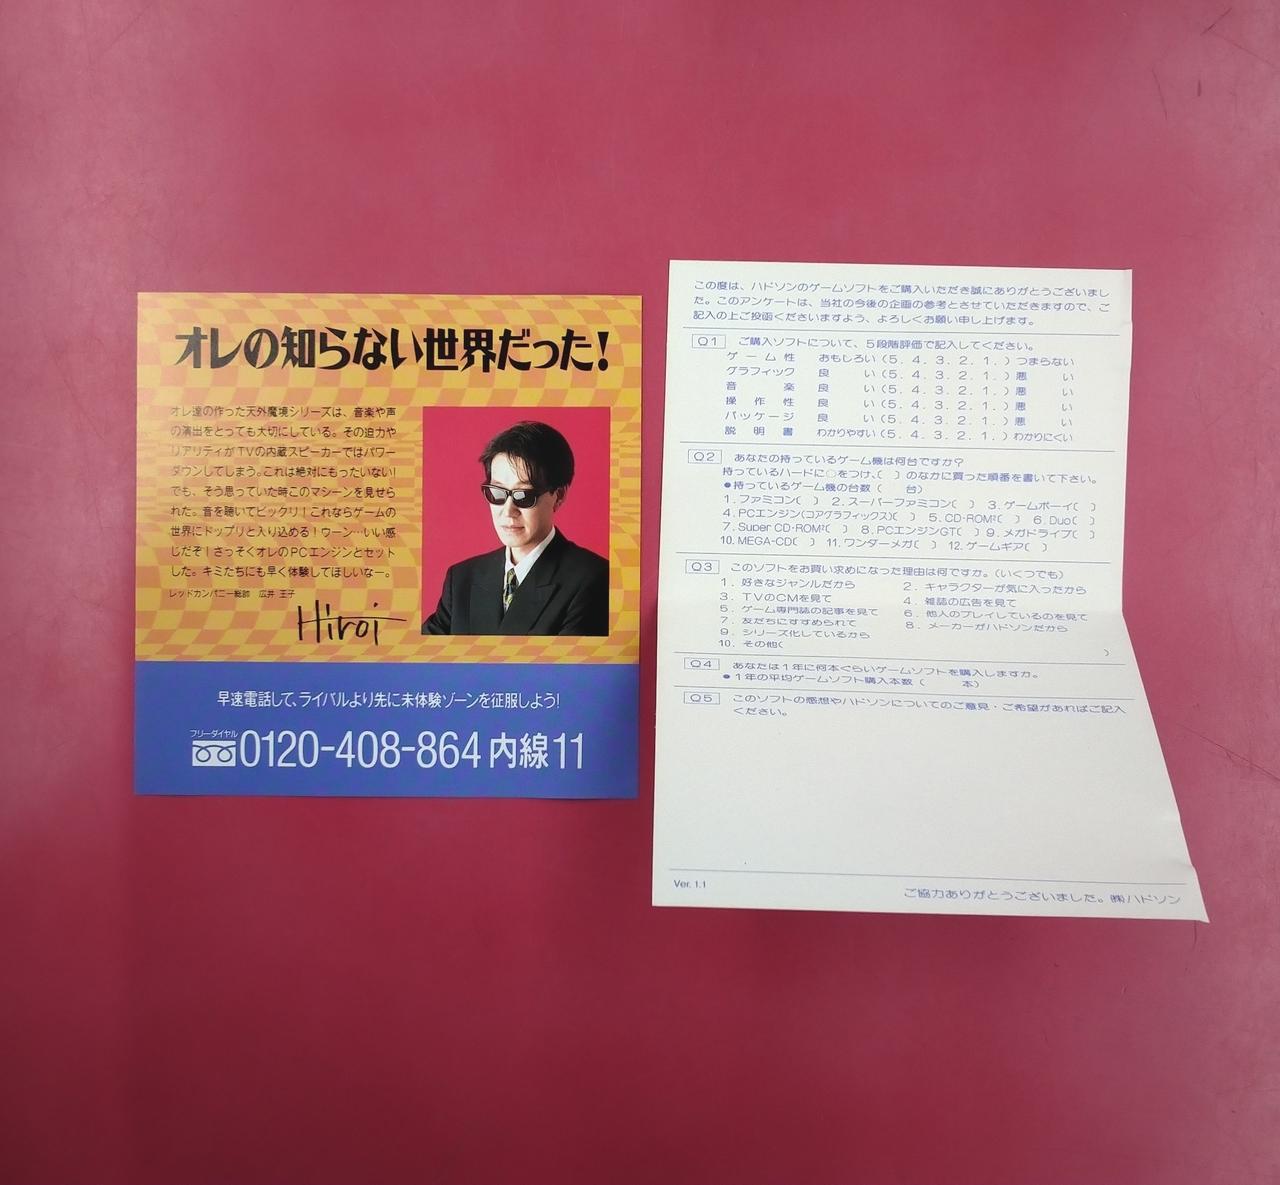 オレの知らない世界だった!
オレ達の作った天外魔境シリーズは、音楽や声
の演出をとっても大切にしている。その迫力や
リアリティがTVの内蔵スピーカーではパワー
ダウンしてしまう。これは絶対にもったいない!
でも、そう思っていた時このマシーンを見せら
れた。音を聴いてビックリ!これならゲームの
世界にドップリと入り込める!ウーン…いい感
じだぞ!さっそくオレのPCエンジンとセット
した。キミたちにも早く体験してほしいなー。
レッドカンパニー総帥 広井 王子
Hiroi
早速電話して、ライバルより先に未体験ゾーンを征服しよう!
フリーダイヤル
0120-408-864 内線11
この度は、ハドソンのゲームソフトをご購入いただき誠にありがとうございまし
た。このアンケートは、当社の今後の企画の参考とさせていただきますので、ご
記入の上ご投函くださいますよう、よろしくお願い申し上げます。
Q1 ご購入ソフトについて、5段階評価で記入してください。
ゲーム性 おもしろい(5.4.3.2.1.)つまらない
グラフィック 良い(5.4.3.2.1.)悪い
音楽 良い(5.4.3.2.1.)悪い
操作性 良い(5.4.3.2.1.)悪い
パッケージ 良い(5.4.3.2.1.)悪い
説明書 わかりやすい(5.4.3.2.1.)わかりにくい
Q2 あなたの持っているゲーム機は何台ですか?
持っているハードに○をつけ、( )のなかに買った順番を書いて下さい。
●持っているゲーム機の台数( 台)
1.ファミコン( ) 2.スーパーファミコン( ) 3.ゲームボーイ( )
4.PCエンジン(コアグラフィックス)( ) 5.CD・ROM²( ) 6.Duo( )
7.Super CD・ROM²( ) 8.PCエンジンGT( ) 9.メガドライブ( )
10.MEGA-CD( ) 11.ワンダーメガ( ) 12.ゲームギア( )
Q3 このソフトをお買い求めになった理由は何ですか。(いくつでも)
1.好きなジャンルだから 2.キャラクターが気に入ったから
3.TVのCMを見て 4.雑誌の広告を見て
5.ゲーム専門誌の記事を見て 6.他人のプレイしているのを見て
7.友だちにすすめられて 8.メーカーがハドソンだから
9.シリーズ化しているから
10.その他( )
Q4 あなたは1年に何本ぐらいゲームソフトを購入しますか。
●1年の平均ゲームソフト購入本数( 本)
Q5 このソフトの感想やハドソンについてのご意見・ご希望があればご記入
ください。
Ver. 1.1
ご協力ありがとうございました。㈱ハドソン